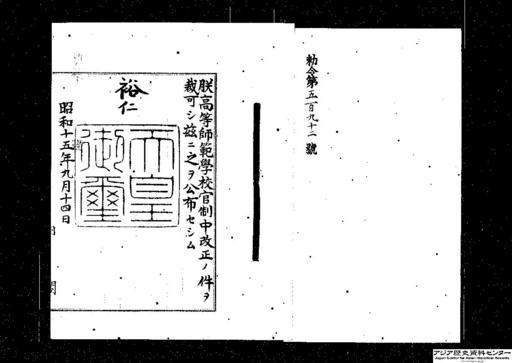 勅令第五百九十二號
朕高等師範學校官制中改正ノ件ヲ
裁可シ茲ニ之ヲ公布セシム
裕仁
天皇
御璽
昭和十五年九月十四日
内 閣
アジア歴史資料センター
Japan Center for Asian Historical Records